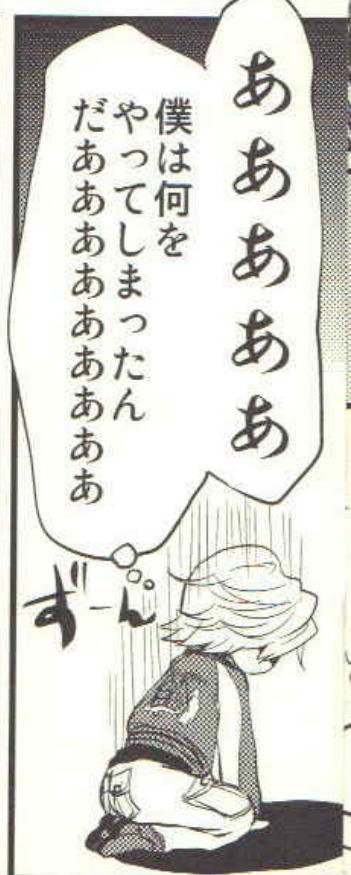 ああああぁ
僕は何を
やってしまったん
だあああああああぁぁ
ずーん